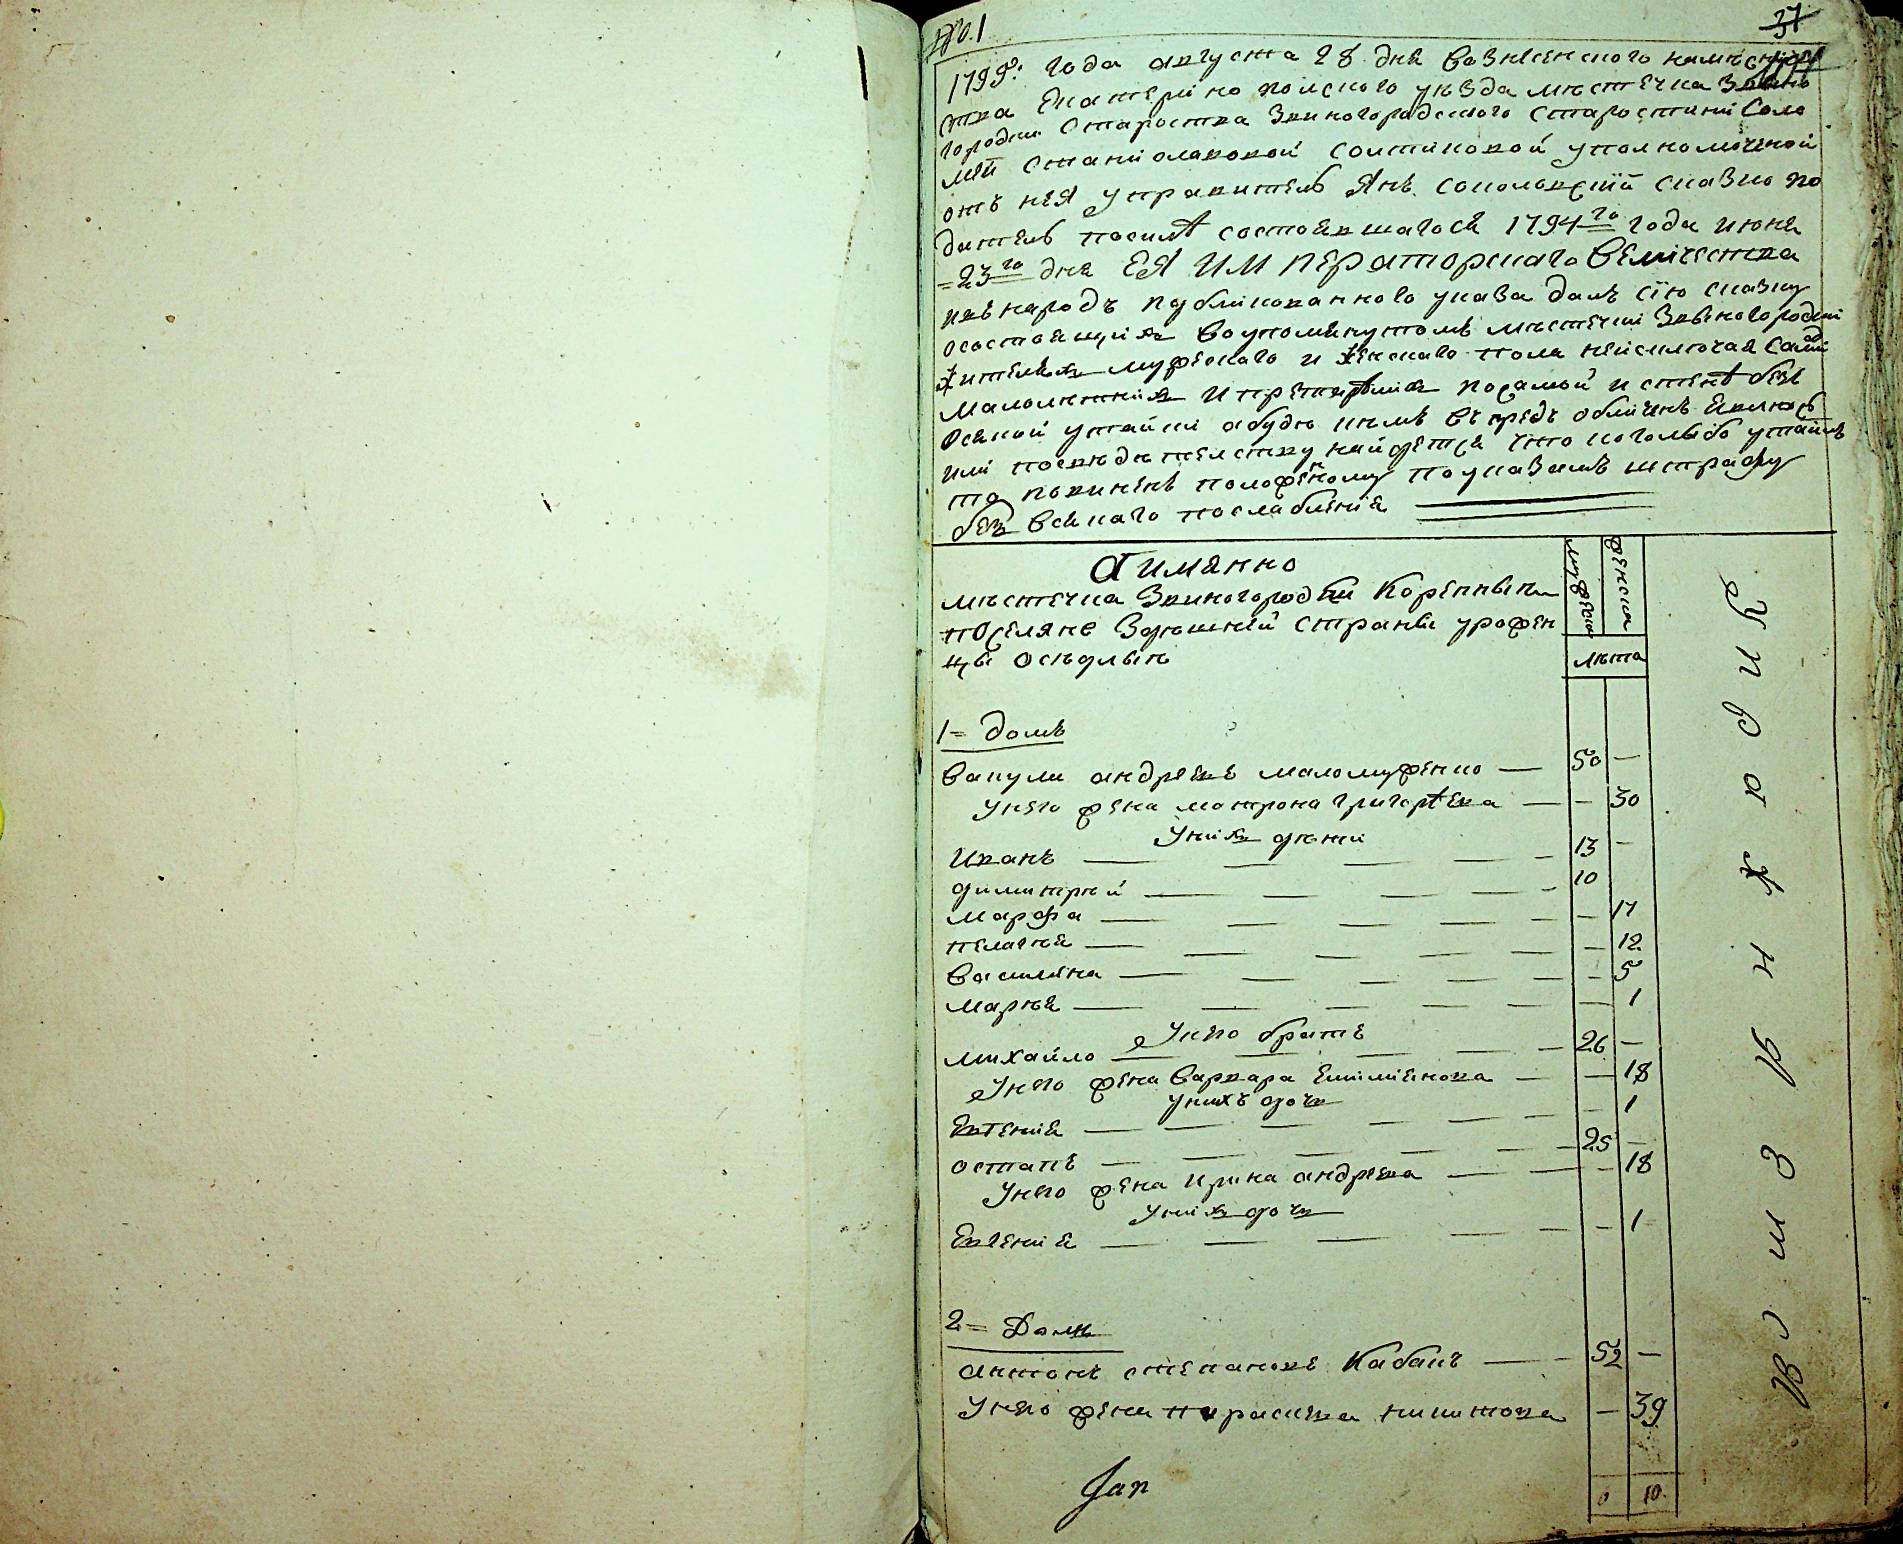 № 1
37
1795го года августа 28 дня Вознесенского намесниче
ства Екатеринополского уезда местечка Звино
городки Староства Звиногородского Старостини Соло
меи Станиславовой Солтиковой уполномоченой
отъ нея управитель Янъ Соколовскій сказко по
датель посилѣ состоявшагося 1794го года июня
23го дня ЕЯ ИМПЕРАТОРСКАГО Величества
ивънародъ публикованного указа далъ сію сказку
осостоящихъ воупомянутомъ мѣстечки Звѣногородки
жителяхъ мужескаго и женскаго пола неисключая самихъ
малолѣтнихъ ипрестарѣлихъ посамой истенѣ безъ
всякой утайки абуде кемъ въпредь обличенъ явлюсь
или посвѣдѣтелству найдется что коголибо утаилъ
то повиненъ положеному поуказамъ штрафу
безъ всякаго послабленія
Аимянно
мѣстечка Звиногородки Коренныхъ
поселянъ Здѣшней страны урожен
цы осѣдлыхъ
мужеска женска
лѣта
1 = домъ
Вакула андреевъ маломуженко — 50 —
Унего жена мотрона григорѣева — — 30
Унихъ дѣти
Иванъ — 13 —
димитрий — 10
марфа — — 17
пелагия — — 12
василина — — 5
мария — — 1
Унего братъ
михайло — 26 —
Унего жена варвара Емилиянова — — 18
унихъ дочь
Евгения — — 1
остапъ — 25 —
Унего жена ирина андреева — — 18
Унихъ дочь
Евгения — — 1
2 = Домъ
антонъ степановъ Кабакъ — 52 —
Унего жена параскева никитова — 39
Jan
10